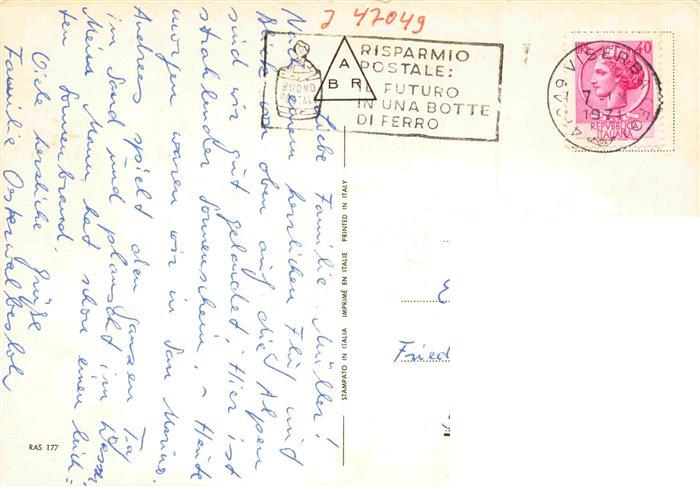 J 47049
RISPARMIO
POSTALE:
IL FUTURO
IN UNA BOTTE
DI FERRO
A
B R
BUONO
POSTALE
47049 VISERBA
7
1971
40
REPVBBLICA
ITALIANA
Liebe Familie Müller!
Nach einem herrlichen Flug mit
Blick von oben auf die Alpen
sind wir gut gelandet. Hier ist
strahlender Sonnenschein. Heute
morgen waren wir in San Marino.
Andreas spielt den ganzen Tag
im Sand und planscht im Wasser.
Mein Mann hat schon einen leich=
ten Sonnenbrand.
Viele herzliche Grüße
Familie Osterwalbesloh
STAMPATO IN ITALIA IMPRIMÉ EN ITALIE PRINTED IN ITALY
RAS 177
Fried